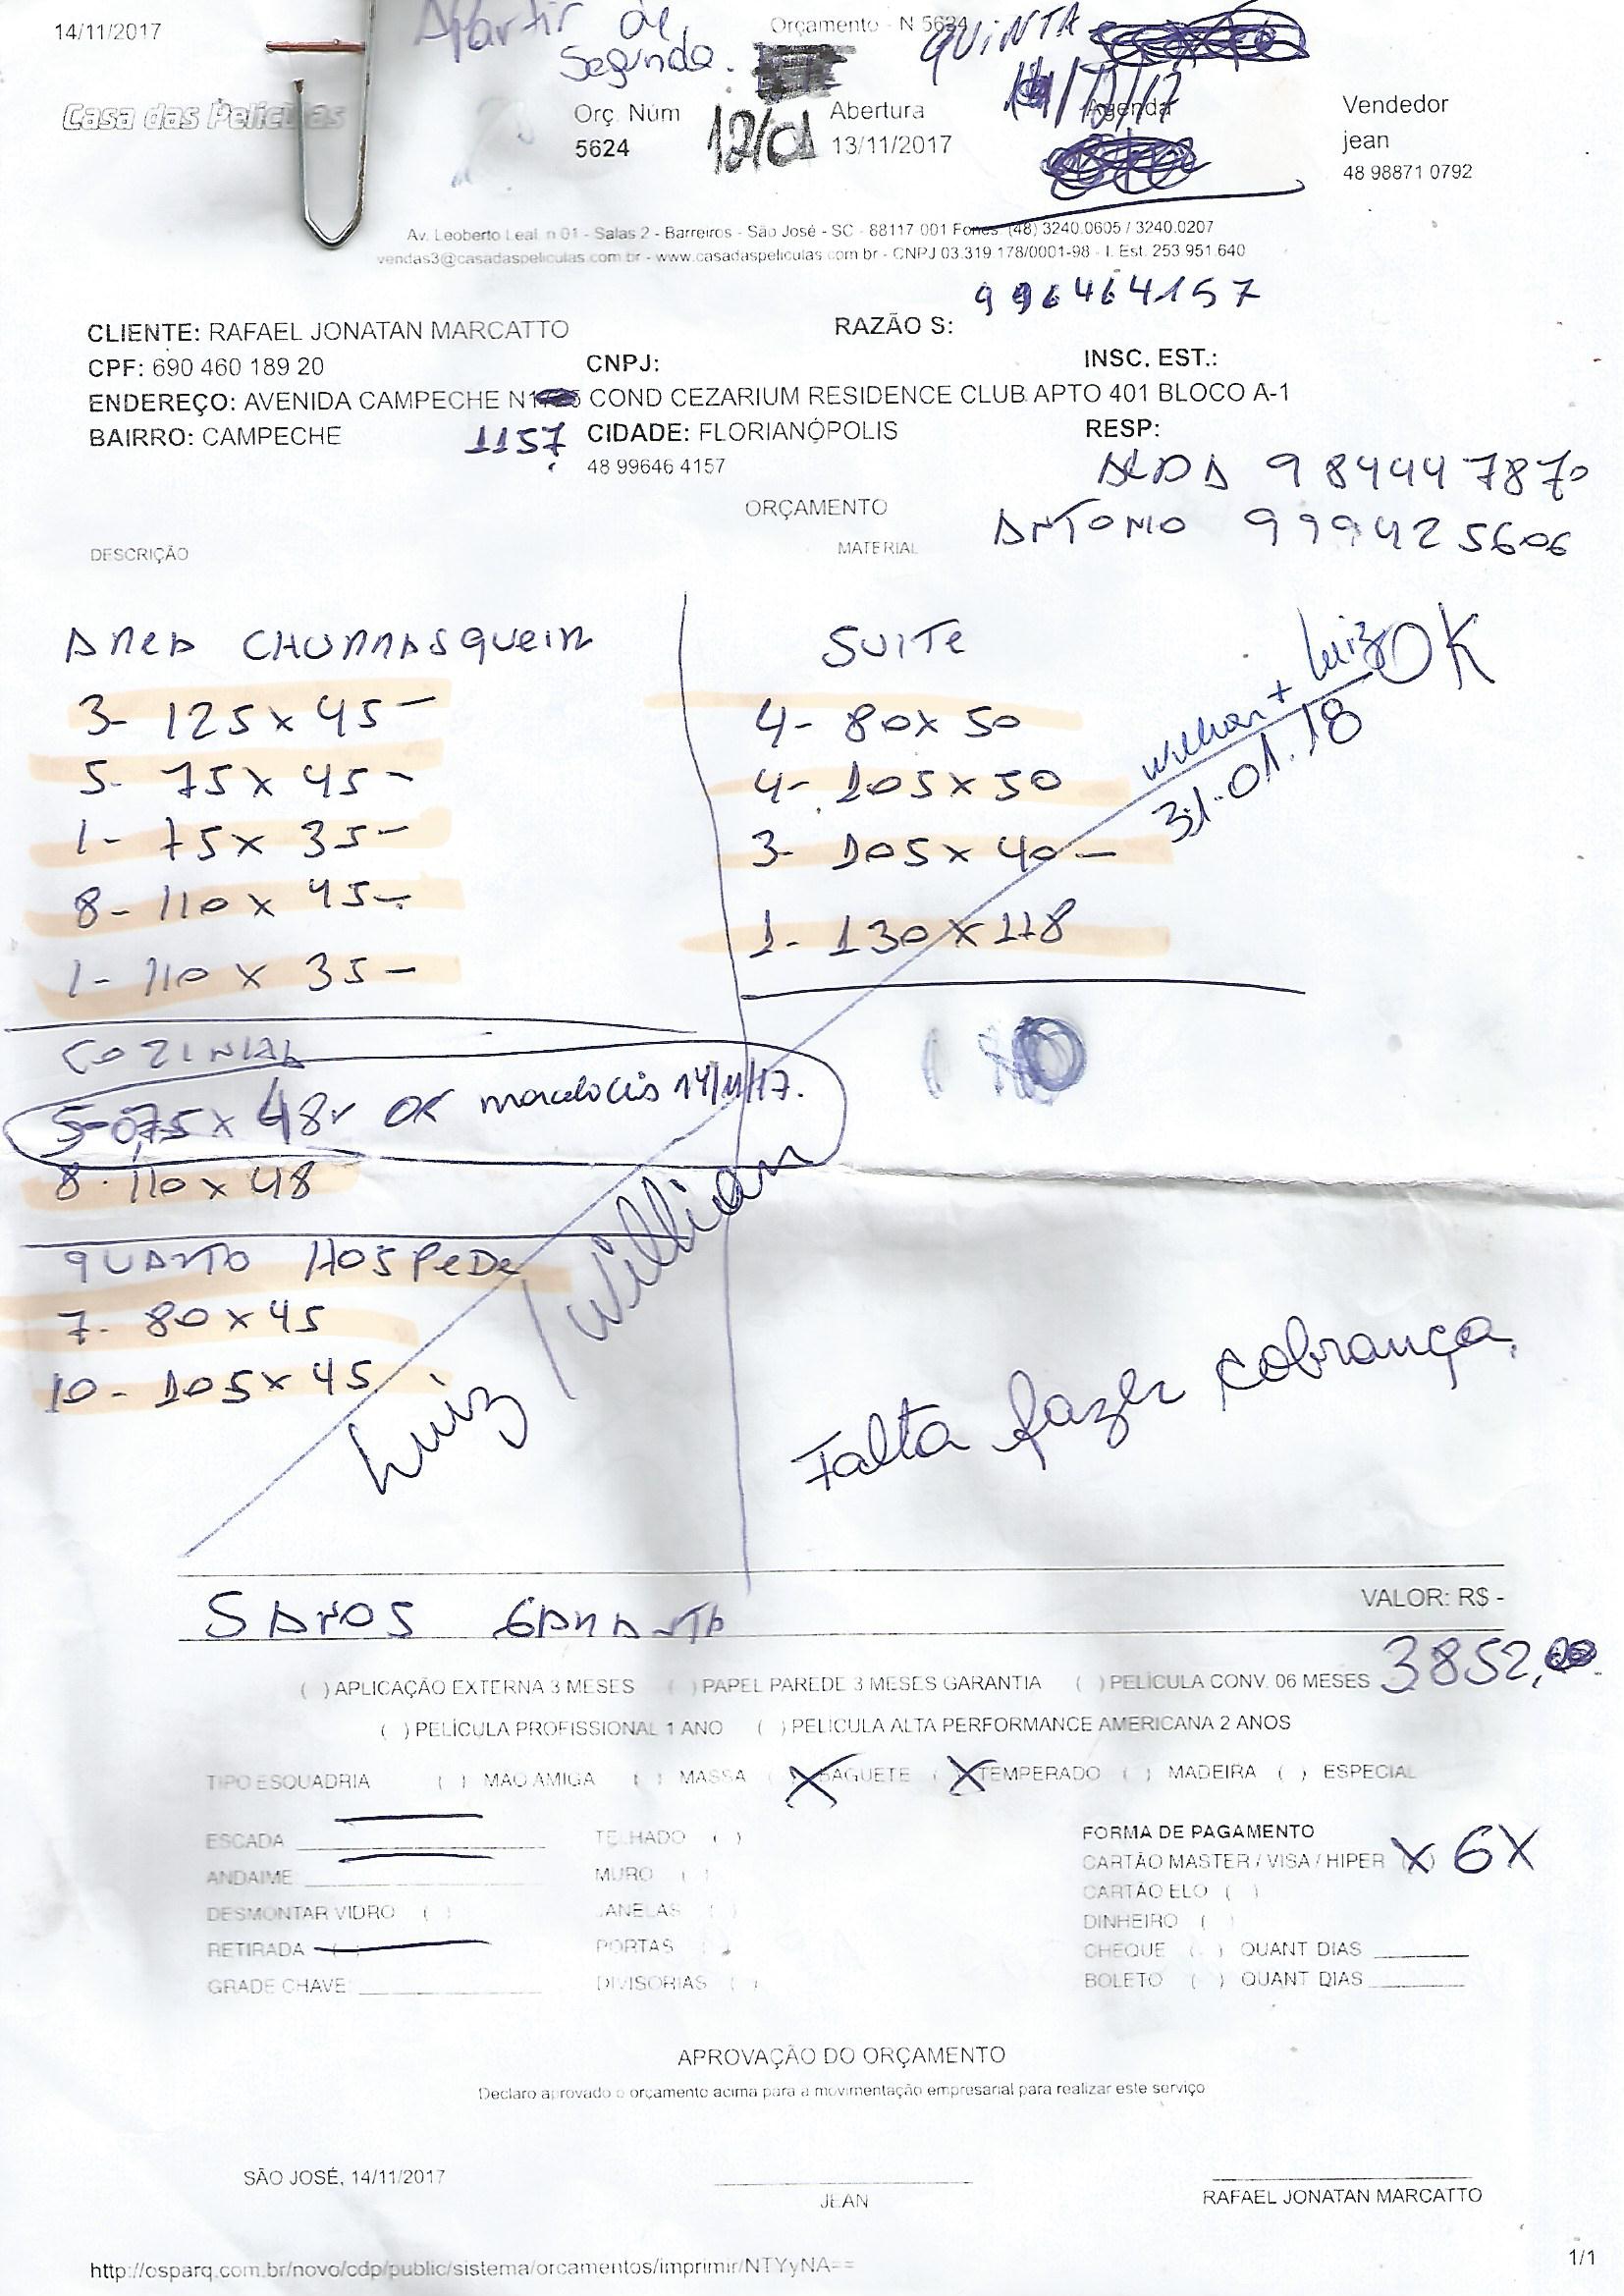 14/11/2017
Apartir de
Segunda.
Orçamento - N 5624
QUINTA
Casa das Películas
Orç. Núm
5624
12/01
Abertura
13/11/2017
Agenda
Vendedor
jean
48 98871 0792
Av. Leoberto Leal n 01 - Salas 2 - Barreiros - São José - SC - 88117 001 Fones (48) 3240.0605 / 3240.0207
vendas3@casadaspeliculas.com.br - www.casadaspeliculas.com.br - CNPJ 03.319.178/0001-98 - I. Est. 253.951.640
996464157
CLIENTE: RAFAEL JONATAN MARCATTO
RAZÃO S:
CPF: 690 460 189 20
CNPJ:
INSC. EST.:
ENDEREÇO: AVENIDA CAMPECHE N COND CEZARIUM RESIDENCE CLUB APTO 401 BLOCO A-1
BAIRRO: CAMPECHE
1157
CIDADE: FLORIANÓPOLIS
RESP:
48 99646 4157
ALDA 984447870
ORÇAMENTO
ANTONIO 999425606
DESCRIÇÃO
MATERIAL
AREA CHURRASQUEIR
3- 125 x 45 -
5- 75 x 45 -
1- 75 x 35 -
8- 110 x 45 -
1- 110 x 35 -
SUITE
4- 80 x 50
4- 105 x 50
3- 105 x 40 -
1- 130 x 118
+ Luiz OK
31.01.18
COZINHA
5-075 x 48 OK 14/11/17.
8- 110 x 48
QUARTO HOSPEDE
7- 80 x 45
10- 105 x 45
Luiz / Willian
Falta fazer cobrança.
VALOR: R$ -
5 ANOS GARANTIA
3852,00
( ) APLICAÇÃO EXTERNA 3 MESES ( ) PAPEL PAREDE 3 MESES GARANTIA ( ) PELÍCULA CONV. 06 MESES
( ) PELÍCULA PROFISSIONAL 1 ANO ( ) PELÍCULA ALTA PERFORMANCE AMERICANA 2 ANOS
TIPO ESQUADRIA ( ) MAO AMIGA ( ) MASSA (X) BAGUETE (X) TEMPERADO ( ) MADEIRA ( ) ESPECIAL
ESCADA
TELHADO ( )
FORMA DE PAGAMENTO
ANDAIME
MURO ( )
CARTÃO MASTER / VISA / HIPER (X) 6X
DESMONTAR VIDRO ( )
JANELAS ( )
CARTÃO ELO ( )
DINHEIRO ( )
RETIRADA ( )
PORTAS ( )
CHEQUE ( ) QUANT DIAS
GRADE CHAVE
DIVISORIAS ( )
BOLETO ( ) QUANT DIAS
APROVAÇÃO DO ORÇAMENTO
Declaro aprovado o orçamento acima para a movimentação empresarial para realizar este serviço
SÃO JOSÉ, 14/11/2017
JEAN
RAFAEL JONATAN MARCATTO
http://osparq.com.br/novo/cdp/public/sistema/orcamentos/imprimir/NTYyNA==
1/1